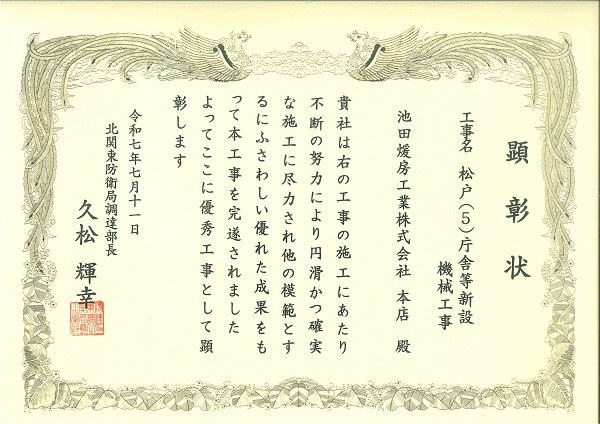 顕彰状
工事名 松戸(5)庁舎等新設
機械工事
池田煖房工業株式会社 本店 殿
貴社は右の工事の施工にあたり
不断の努力により円滑かつ確実
な施工に尽力され他の模範とす
るにふさわしい優れた成果をも
って本工事を完遂されました
よってここに優秀工事として顕
彰します
令和七年七月十一日
北関東防衛局調達部長
久松 輝幸